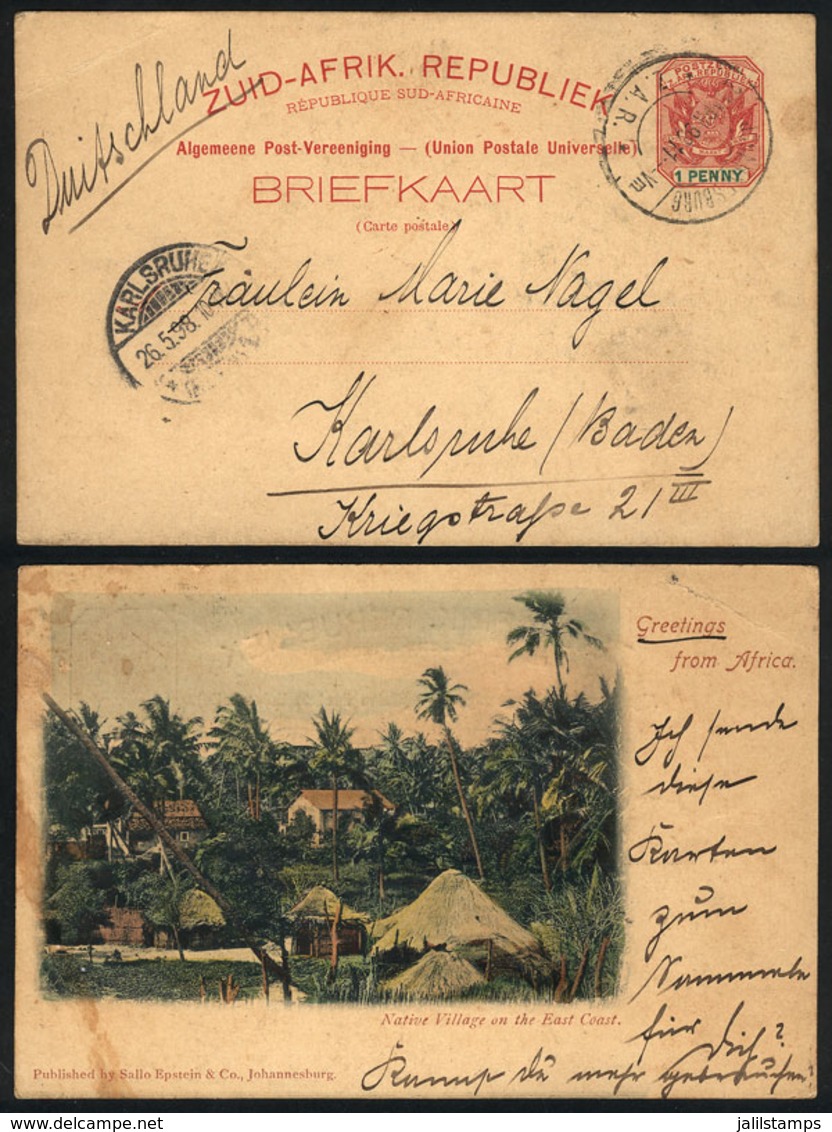 Duitschland
ZUID-AFRIK. REPUBLIEK
RÉPUBLIQUE SUD-AFRICAINE
Algemeene Post-Vereeniging — (Union Postale Universelle)
BRIEFKAART
(Carte postale)
POSTZEGEL
Z. AFR. REPUBLIEK
1 PENNY
Z.A.R.
KARLSRUHE
26.5.98.10
Fräulein Marie Nagel
Karlsruhe (Baden)
Kriegstraße 21 III
Greetings
from Africa.
Ich sende
diese
Karten
zum
Sammeln
für
Dich?
Kannst Du mehr gebrauchen?
Native Village on the East Coast.
Published by Sallo Epstein & Co., Johannesburg.
jalilstamps